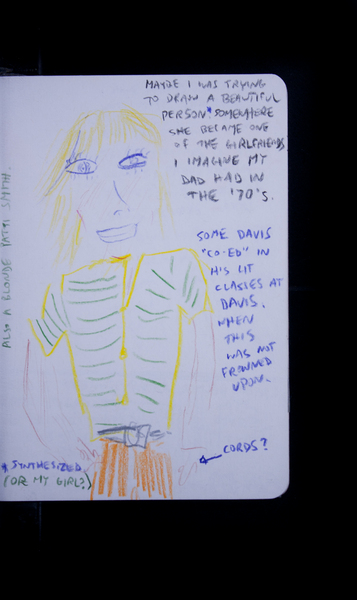 MAYBE I WAS TRYING
TO DRAW A BEAUTIFUL
PERSON* SOMEWHERE
SHE BECAME ONE
OF THE GIRLFRIENDS
I IMAGINE MY
DAD HAD IN
THE '70'S.
SOME DAVIS
"CO-ED" IN
HIS LIT
CLASSES AT
DAVIS.
WHEN
THIS
WAS NOT
FROWNED
UPON.
CORDS?
* SYNTHESIZED
(OR MY GIRL?)
ALSO A BLONDE PATTI SMITH.